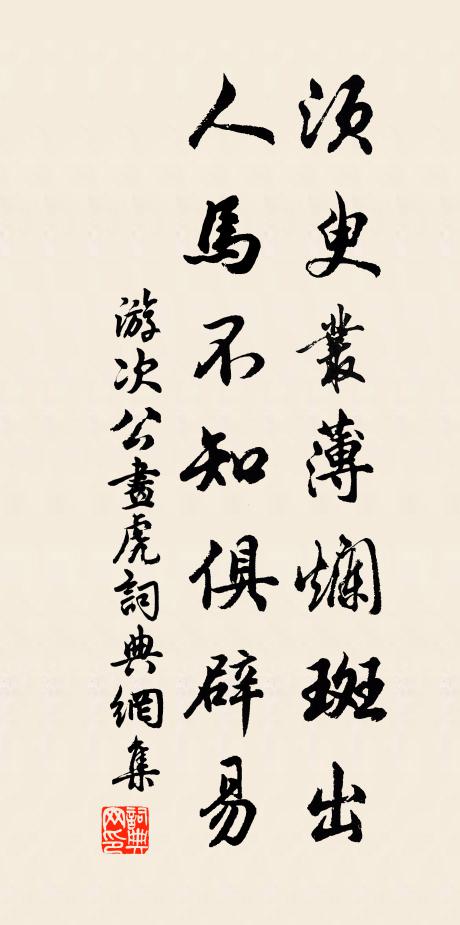 須臾叢薄斕斑出
人馬不知俱辟易
游次公畫虎詞典網集
詞典網印